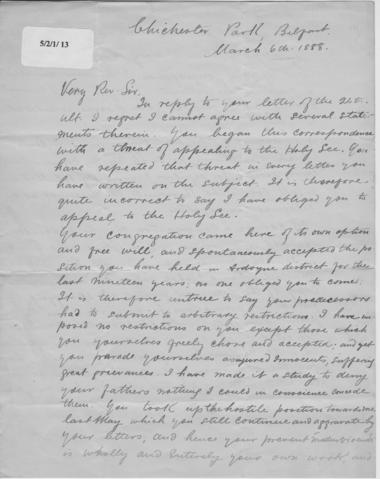 5/2/1/13
Chichester Park, Belfast.
March 6th 1888.
Very Rev Sir.
In reply to your letter of the
ult. I regret I cannot agree with several state-
ments therein. You began this correspondence
with a threat of appealing to the Holy See. You
have repeated that threat in every letter you
have written on the subject. It is therefore
quite incorrect to say I have obliged you to
appeal to the Holy See.
Your congregation came here of its own option
and free will, and spontaneously accepted the po
sition you have held in Ardoyne district for the
last nineteen years; no one obliged you to come.
It is therefore untrue to say your predecessors
had to submit to arbitrary restrictions. I have im
posed no restrictions on you except those which
you yourselves freely chose and accepted, and yet
you parade yourselves as injured innocents, suffering
great grievances. I have made it a study to deny
your fathers nothing I could in conscience concede
them. You took up the hostile position towards me
last May which you still continue and aggravate by
your letters, and hence your present
is wholly and entirely your own work and